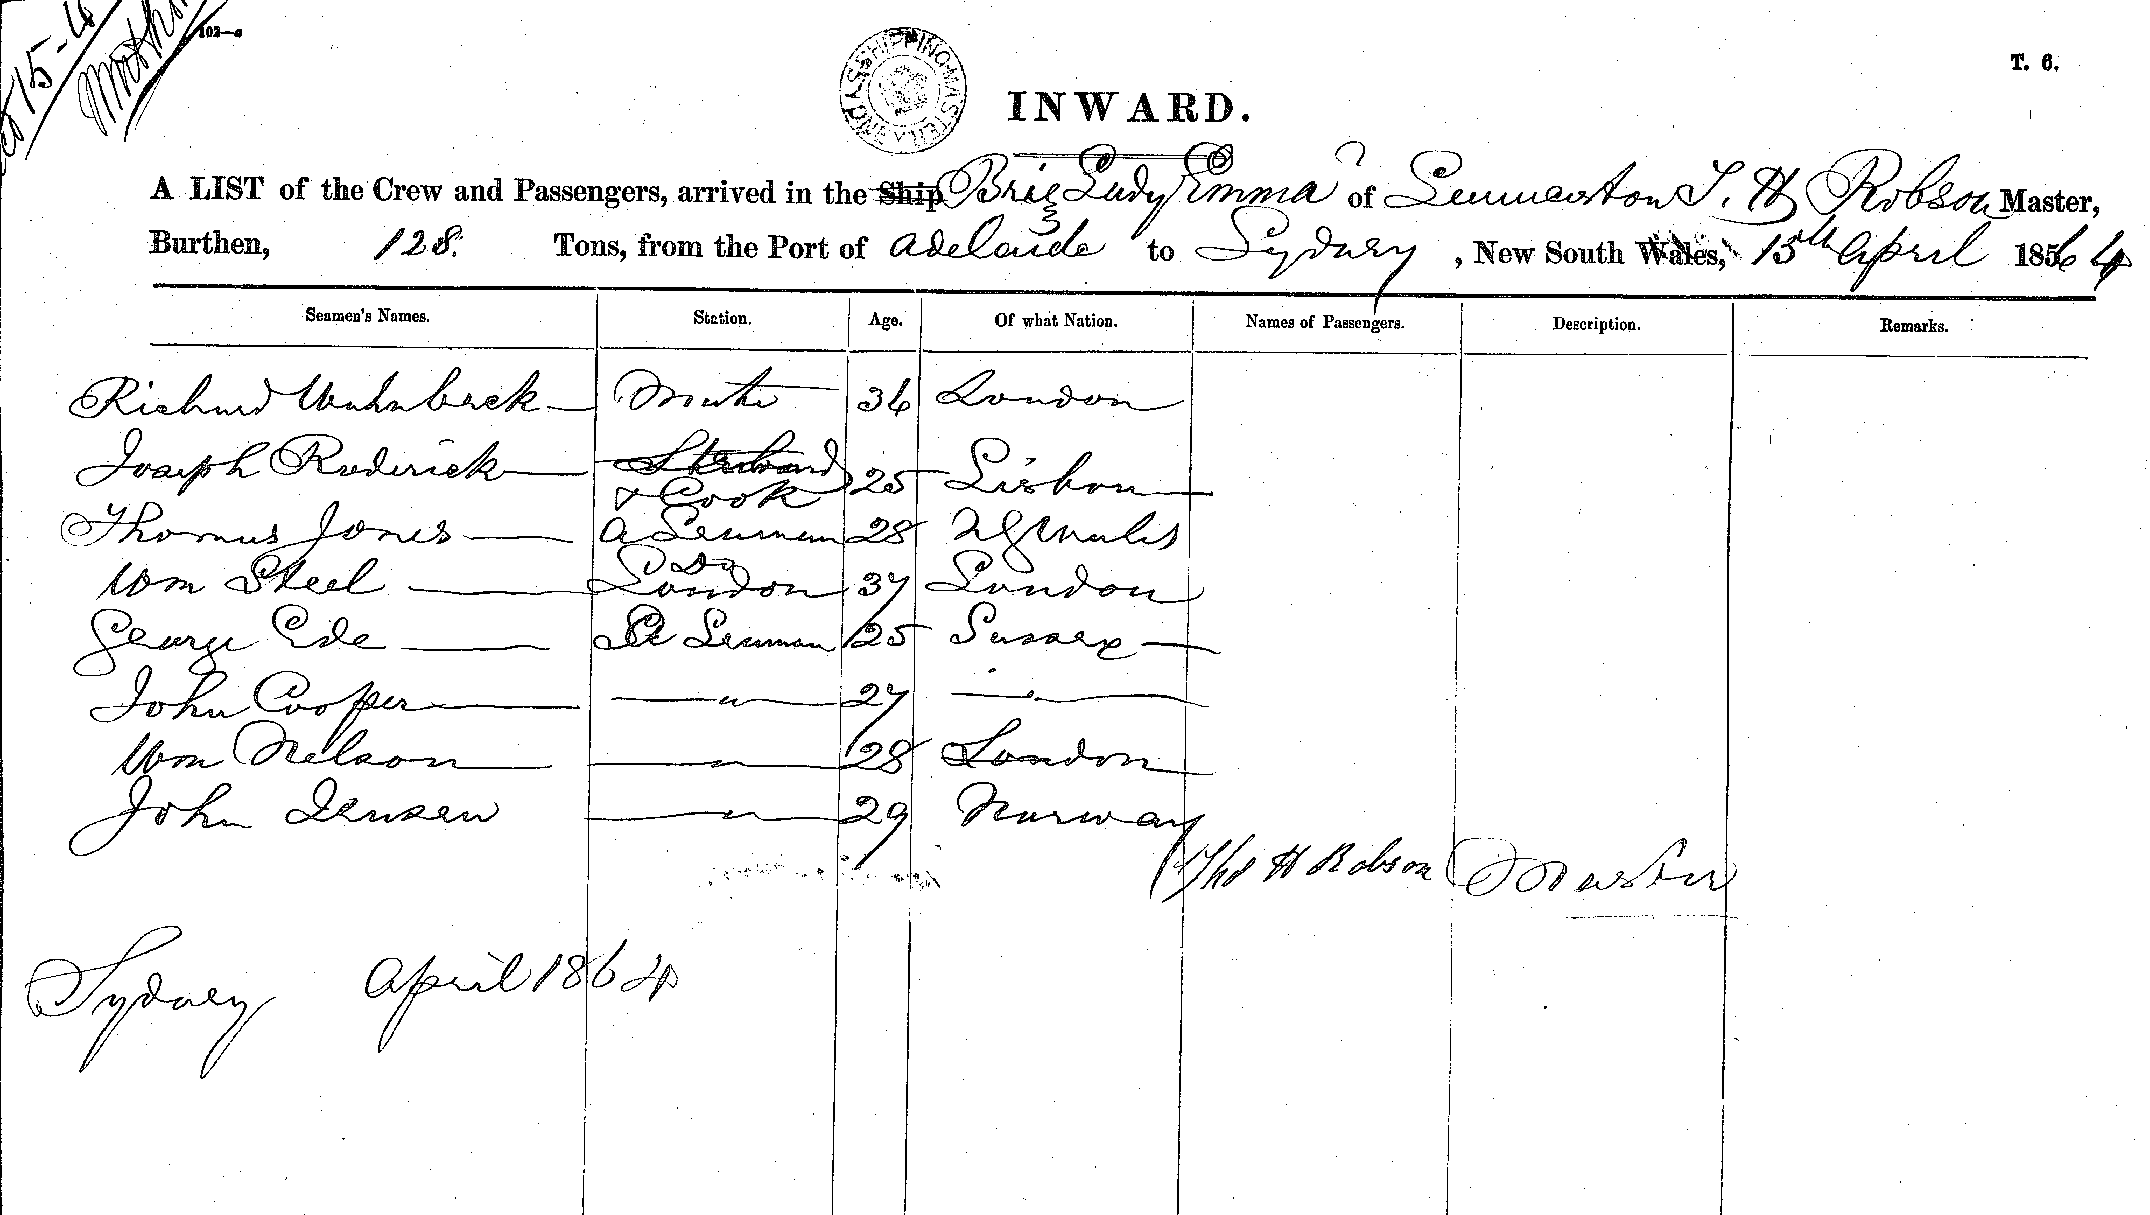 15-4
102—a
SHIPPING MASTER SYDNEY
T. 6.
INWARD.
A LIST of the Crew and Passengers, arrived in the Ship Brig Lady Emma of Launceston T. H Robson Master,
Burthen, 128. Tons, from the Port of Adelaide to Sydney, New South Wales, 15th April 1864
Seamen's Names. Station. Age. Of what Nation. Names of Passengers. Description. Remarks.
Richard Mate 36 London
Joseph Roderick Steward & Cook 25 Lisbon
Thomas Jones A Seaman 28 Wales
Wm Steel Do London 37 London
George Ede Seaman 25 Sussex
John Cooper " 27 "
Wm Nelson " 28 London
John Jensen " 29 Norway
Tho H Robson Master
Sydney April 1864